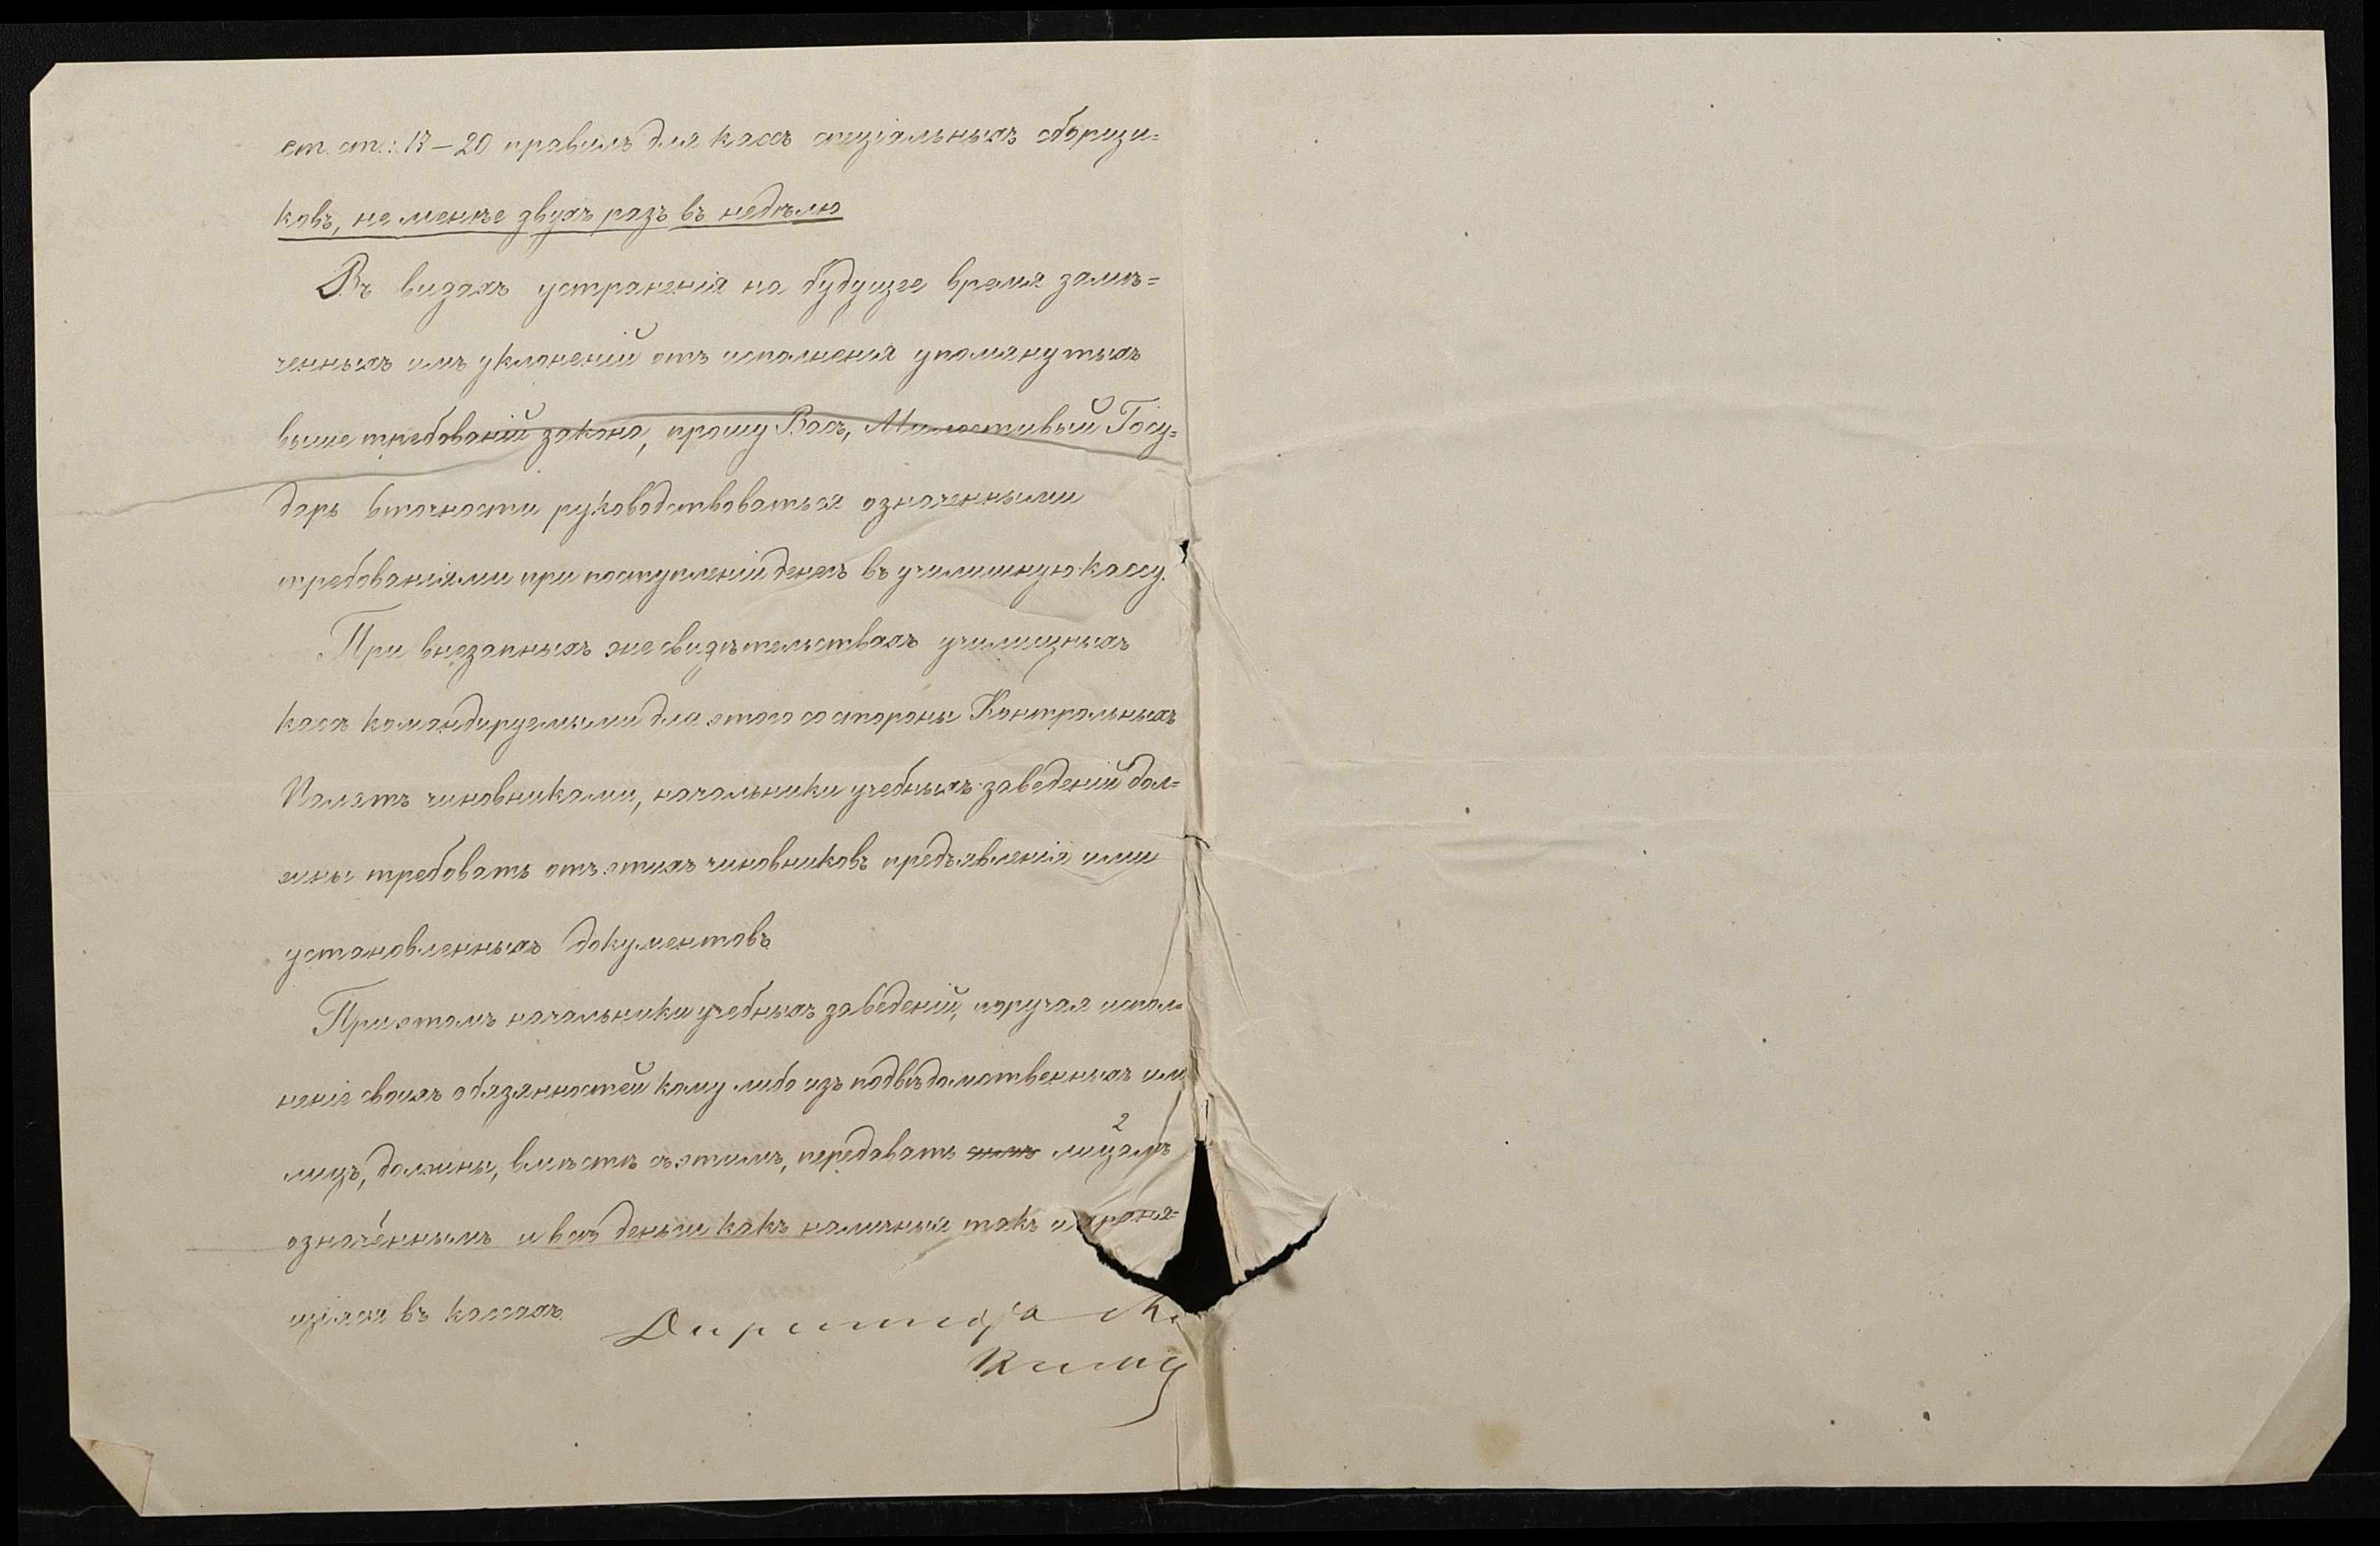 ст. ст.: 17–20 правилъ для кассъ спеціальныхъ сборщи=
ковъ, не менѣе двухъ разъ въ недѣлю
Въ видахъ устраненія на будущее время замѣ=
ченныхъ имъ уклоненій отъ исполненія упомянутыхъ
выше требованій закона, прошу Васъ, Милостивый Госу=
дарь вточности руководствоваться означенными
требованіями при поступленіи денегъ въ училишную кассу.
При внезапныхъ же свидѣтельствахъ училищныхъ
кассъ командируемыми для этого со стороны Контрольныхъ
Палатъ чиновниками, начальники учебныхъ заведеній дол=
жны требовать отъ этихъ чиновниковъ предъявленія ими
установленныхъ документовъ
При этомъ начальники учебныхъ заведеній, поручая испол=
неніе своихъ обязанностей кому либо изъ подвѣдомственныхъ им
лицъ, должны, вмѣстѣ съ этимъ, передавать лицамъ
означеннымъ и всѣ деньги какъ наличныя такъ и храня=
щіяся въ кассахъ.